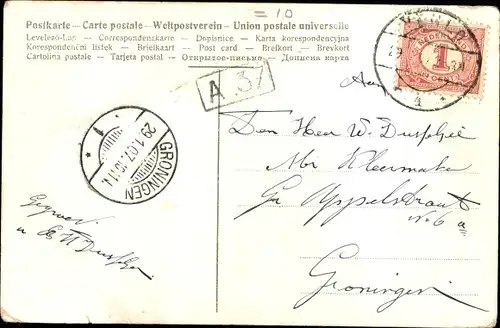 = 10
Postkarte – Carte postale – Weltpostverein – Union postale universelle
Levelező-Lap – Correspondenzkarte – Dopisnice – Karta korespondencyjna
Korespondenční lístek – Briefkaart – Post card – Brefkort – Brevkort
Cartolina postale – Tarjeta postal – Открытое письмо – Дописна карта
A 37
NEDERLAND
1
CENT
Aan
GRONINGEN
29.1.07.
Den Heer W.
Mr Kleermaker
Gr Appelstraat
No 6 a
Groningen